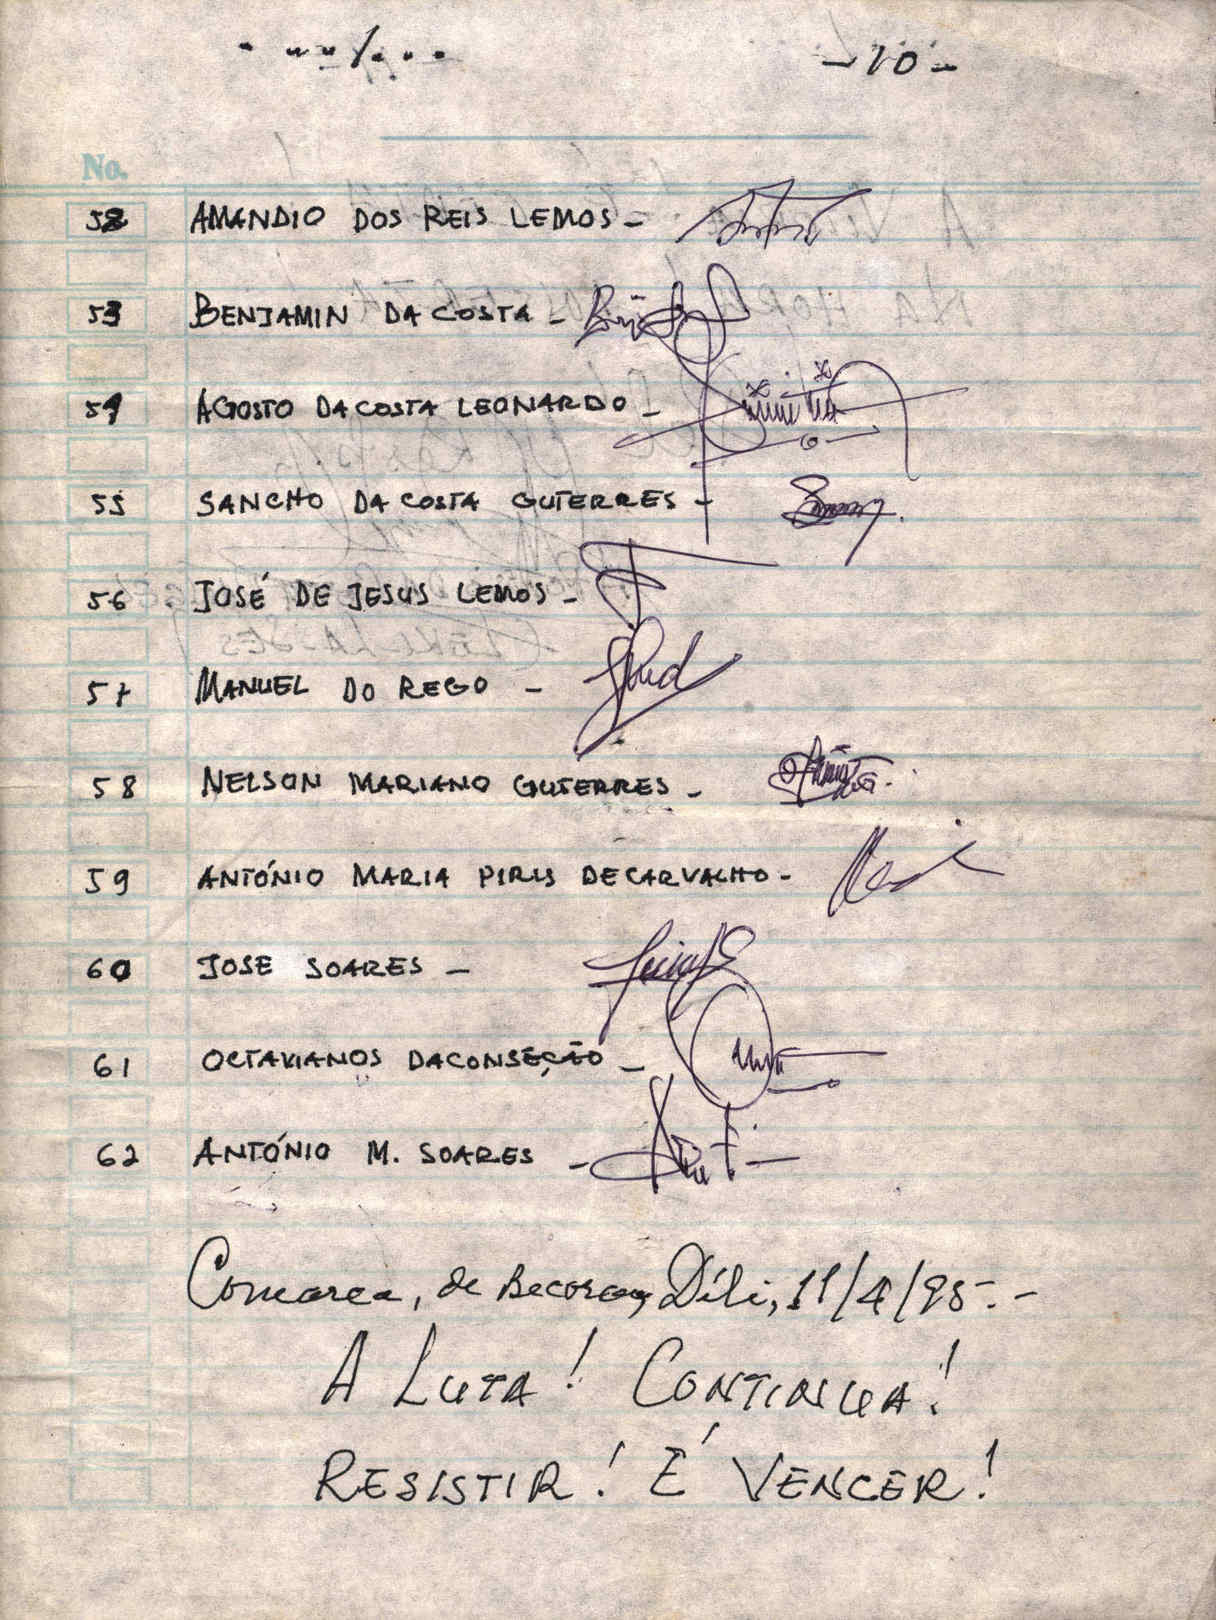 -10-
No.
52 AMANDIO DOS REIS LEMOS -
53 BENJAMIN DA COSTA -
54 AGOSTO DA COSTA LEONARDO -
55 SANCHO DA COSTA GUTERRES -
56 JOSÉ DE JESUS LEMOS -
57 MANUEL DO REGO -
58 NELSON MARIANO GUTERRES -
59 ANTÓNIO MARIA PIRIS DE CARVALHO -
60 JOSE SOARES -
61 OCTAVIANOS DA CONSEÇÃO -
62 ANTÓNIO M. SOARES -
Comarca, de Becora, Díli, 11/4/95.-
A LUTA! CONTINUA!
RESISTIR! É VENCER!